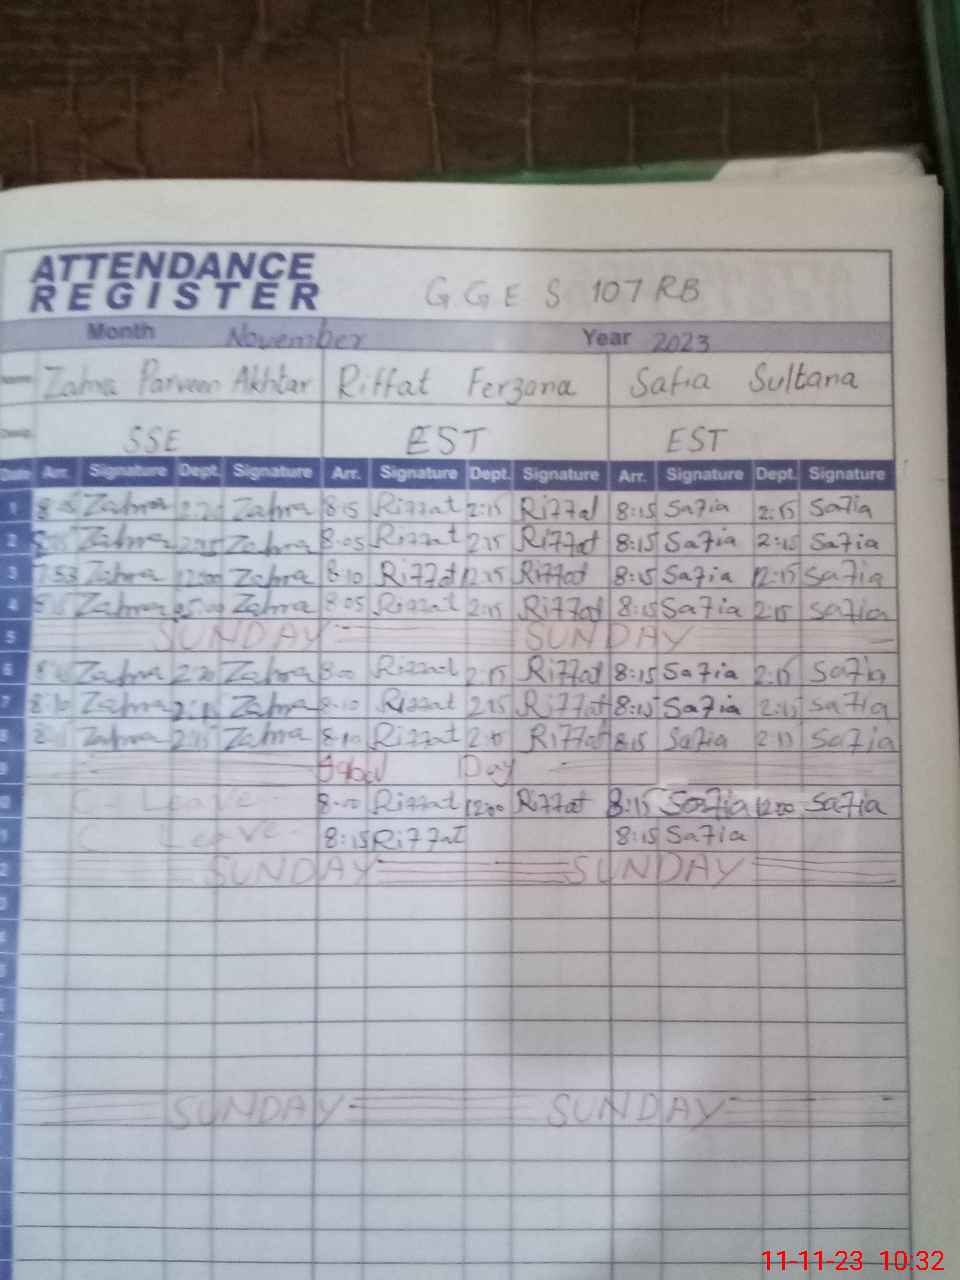 ATTENDANCE
REGISTER
G.G E S 107 RB
Month November Year 2023
Zahra Parveen Akhtar Riffat Ferzana Safia Sultana
SSE EST EST
Date Arr. Signature Dept. Signature Arr. Signature Dept. Signature Arr. Signature Dept. Signature
1 Zahra Zahra 8:15 Riffat 2:15 Riffat 8:15 Safia 2:15 Safia
2 Zahra Zahra 8:05 Riffat 2:15 Riffat 8:15 Safia 2:15 Safia
3 7:53 Zahra 12:00 Zahra 8:10 Riffat 12:15 Riffat 8:15 Safia 12:15 Safia
4 Zahra Zahra 8:05 Riffat 2:15 Riffat 8:15 Safia 2:15 Safia
5 SUNDAY SUNDAY
6 Zahra 2:20 Zahra 8:00 Riffat 2:15 Riffat 8:15 Safia 2:15 Safia
7 8:10 Zahra Zahra 8:10 Riffat 2:15 Riffat 8:15 Safia 2:15 Safia
8 Zahra 2:15 Zahra 8:10 Riffat Riffat 8:15 Safia Safia
Iqbal Day
C- Leave 8:00 Riffat 12:00 Riffat 8:15 Safia 12:00 Safia
C Leave 8:15 Riffat 8:15 Safia
SUNDAY SUNDAY
SUNDAY SUNDAY
11-11-23 10:32